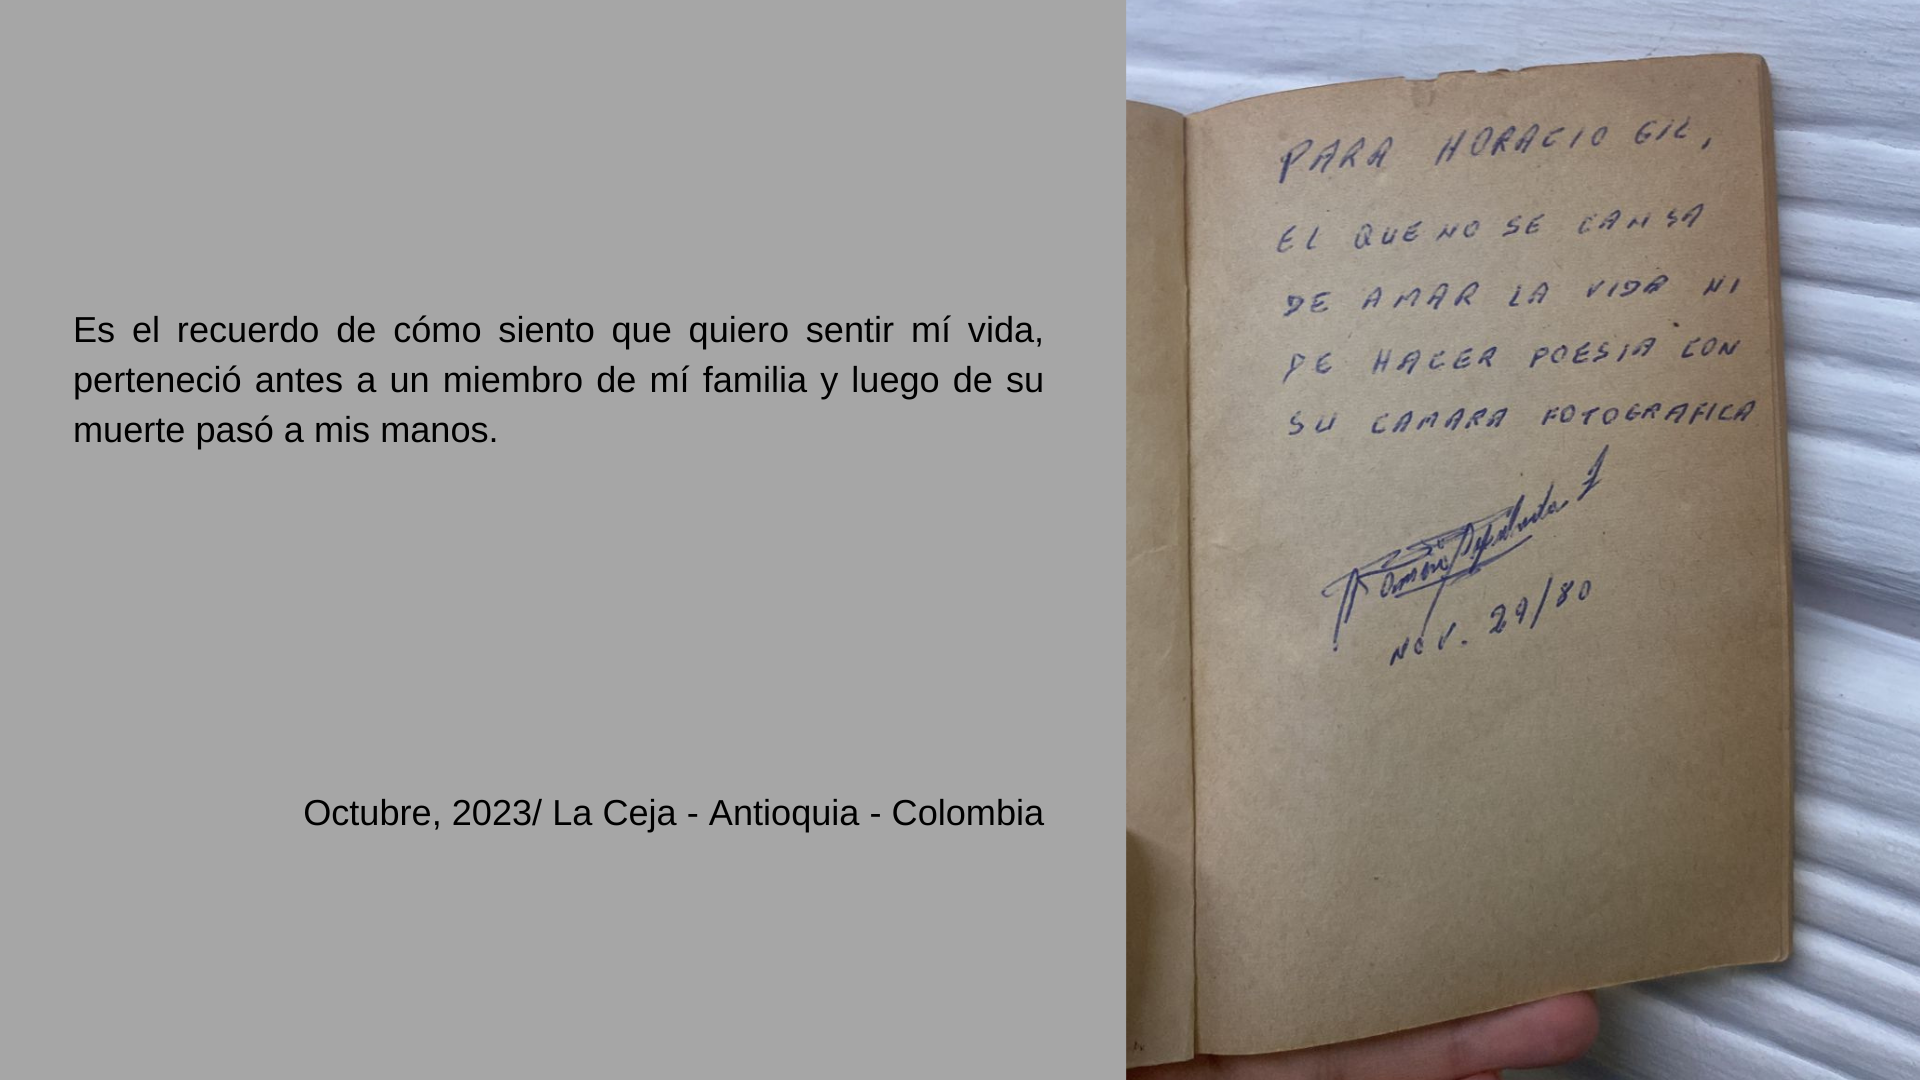 Es el recuerdo de cómo siento que quiero sentir mí vida,
perteneció antes a un miembro de mí familia y luego de su
muerte pasó a mis manos.
Octubre, 2023/ La Ceja - Antioquia - Colombia
PARA HORACIO GIL,
EL QUE NO SE CANSA
DE AMAR LA VIDA NI
DE HACER POESIA CON
SU CAMARA FOTOGRAFICA
NOV. 29/80